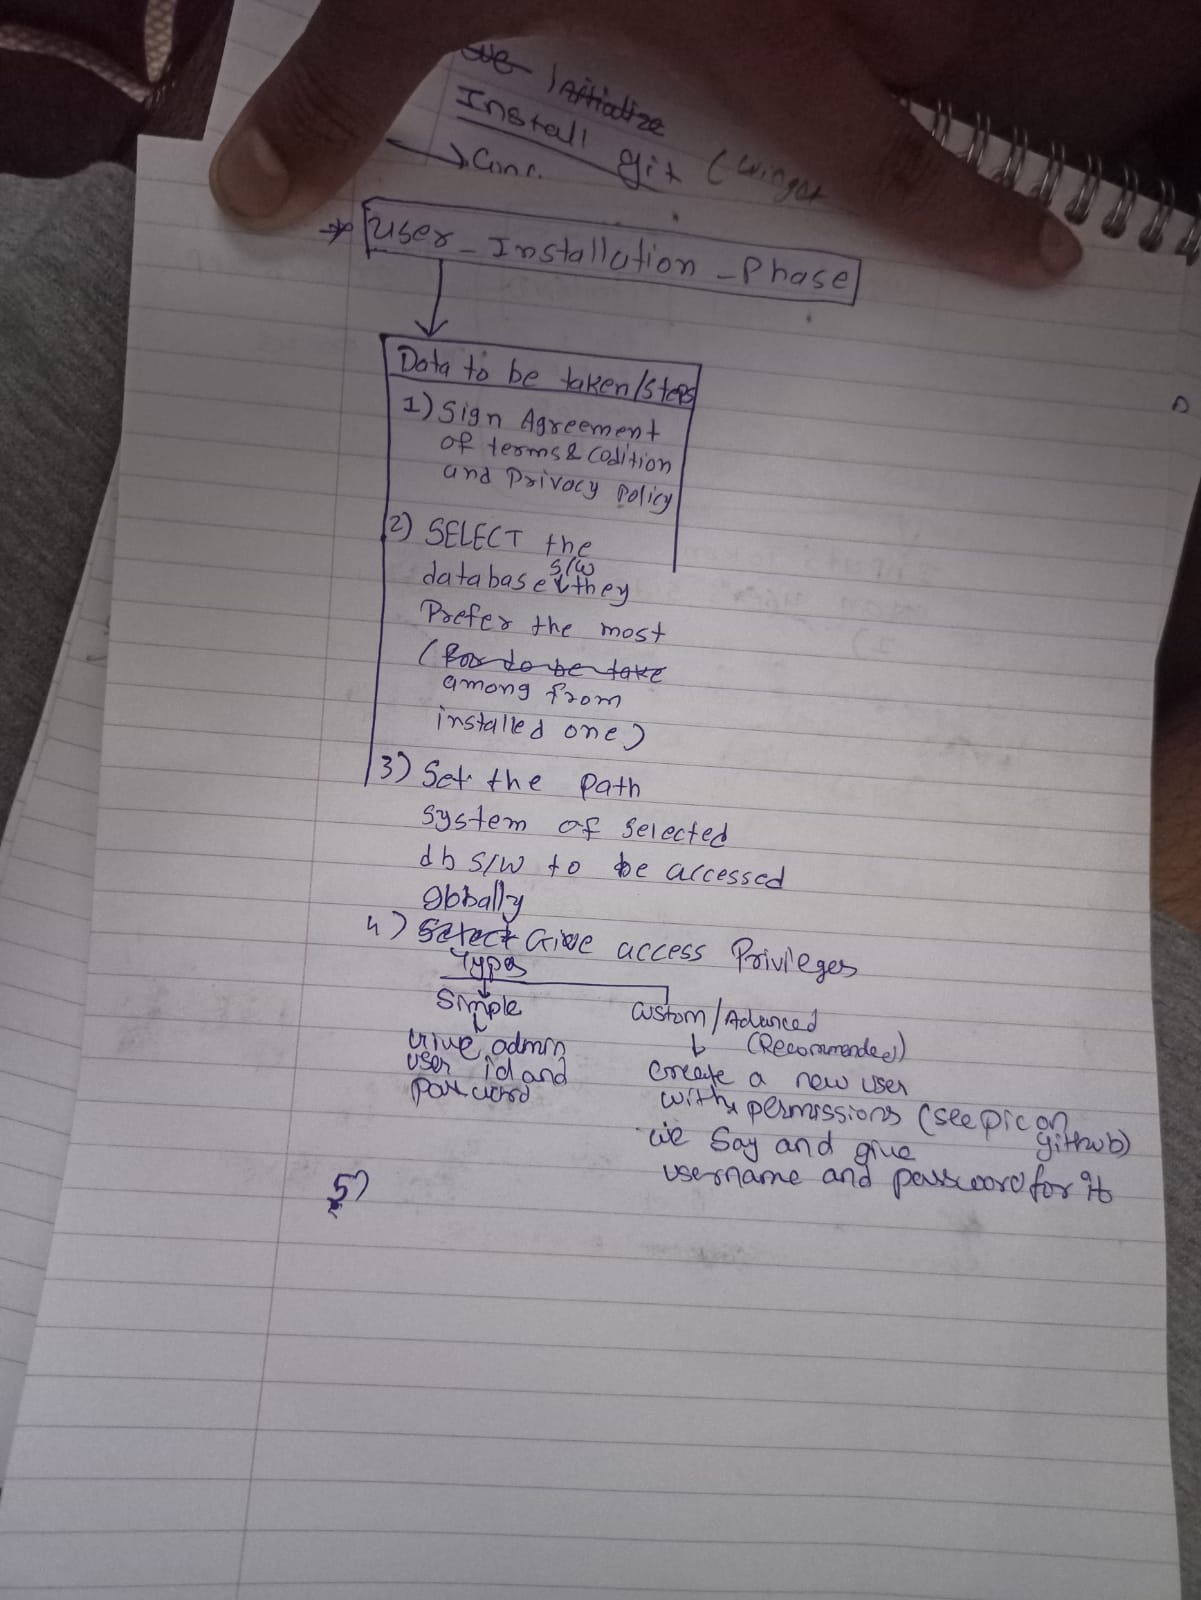 Install git (winget
User_Installation_Phase
Data to be taken/Steps
1) Sign Agreement
of terms & Codition
and Privacy Policy
2) SELECT the
s/w
database they
Prefer the most
(
among from
installed one)
3) Set the Path
System of Selected
db S/W to be accessed
globally
4) Select Give access Privileges
Types
Simple
Custom/Advanced
(Recommended)
Give admin
user id and
password
Create a new user
with permissions (see pic on
github)
we Say and give
username and password for it
5)